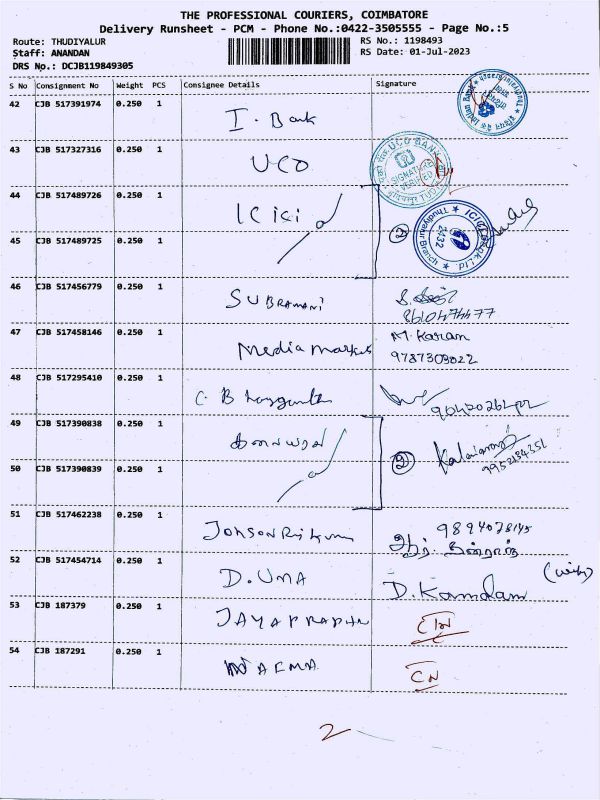 THE PROFESSIONAL COURIERS, COIMBATORE
Delivery Runsheet - PCM - Phone No.:0422-3505555 - Page No.:5
Route: THUDIYALUR RS No.: 1198493
Staff: ANANDAN RS Date: 01-Jul-2023
DRS No.: DCJB119849305
S No Consignment No Weight PCS Consignee Details Signature
42 CJB 517391974 0.250 1 I. Bank
43 CJB 517327316 0.250 1 UCO UCO BANK SIGNATURE VERIFIED
44 CJB 517489726 0.250 1 ICICI
45 CJB 517489725 0.250 1 2 ICICI Bank Ltd. Thudiyalur Branch 2432
46 CJB 517456779 0.250 1 SUBRAMANI
8610474477
47 CJB 517458146 0.250 1 Media Market M. Karan
9787309022
48 CJB 517295410 0.250 1 C. B
49 CJB 517390838 0.250 1
50 CJB 517390839 0.250 1 2
51 CJB 517462238 0.250 1 9894078145
52 CJB 517454714 0.250 1 D. UMA D. (wife)
53 CJB 187379 0.250 1 JAYAPRAPHA
54 CJB 187291 0.250 1 CN
2